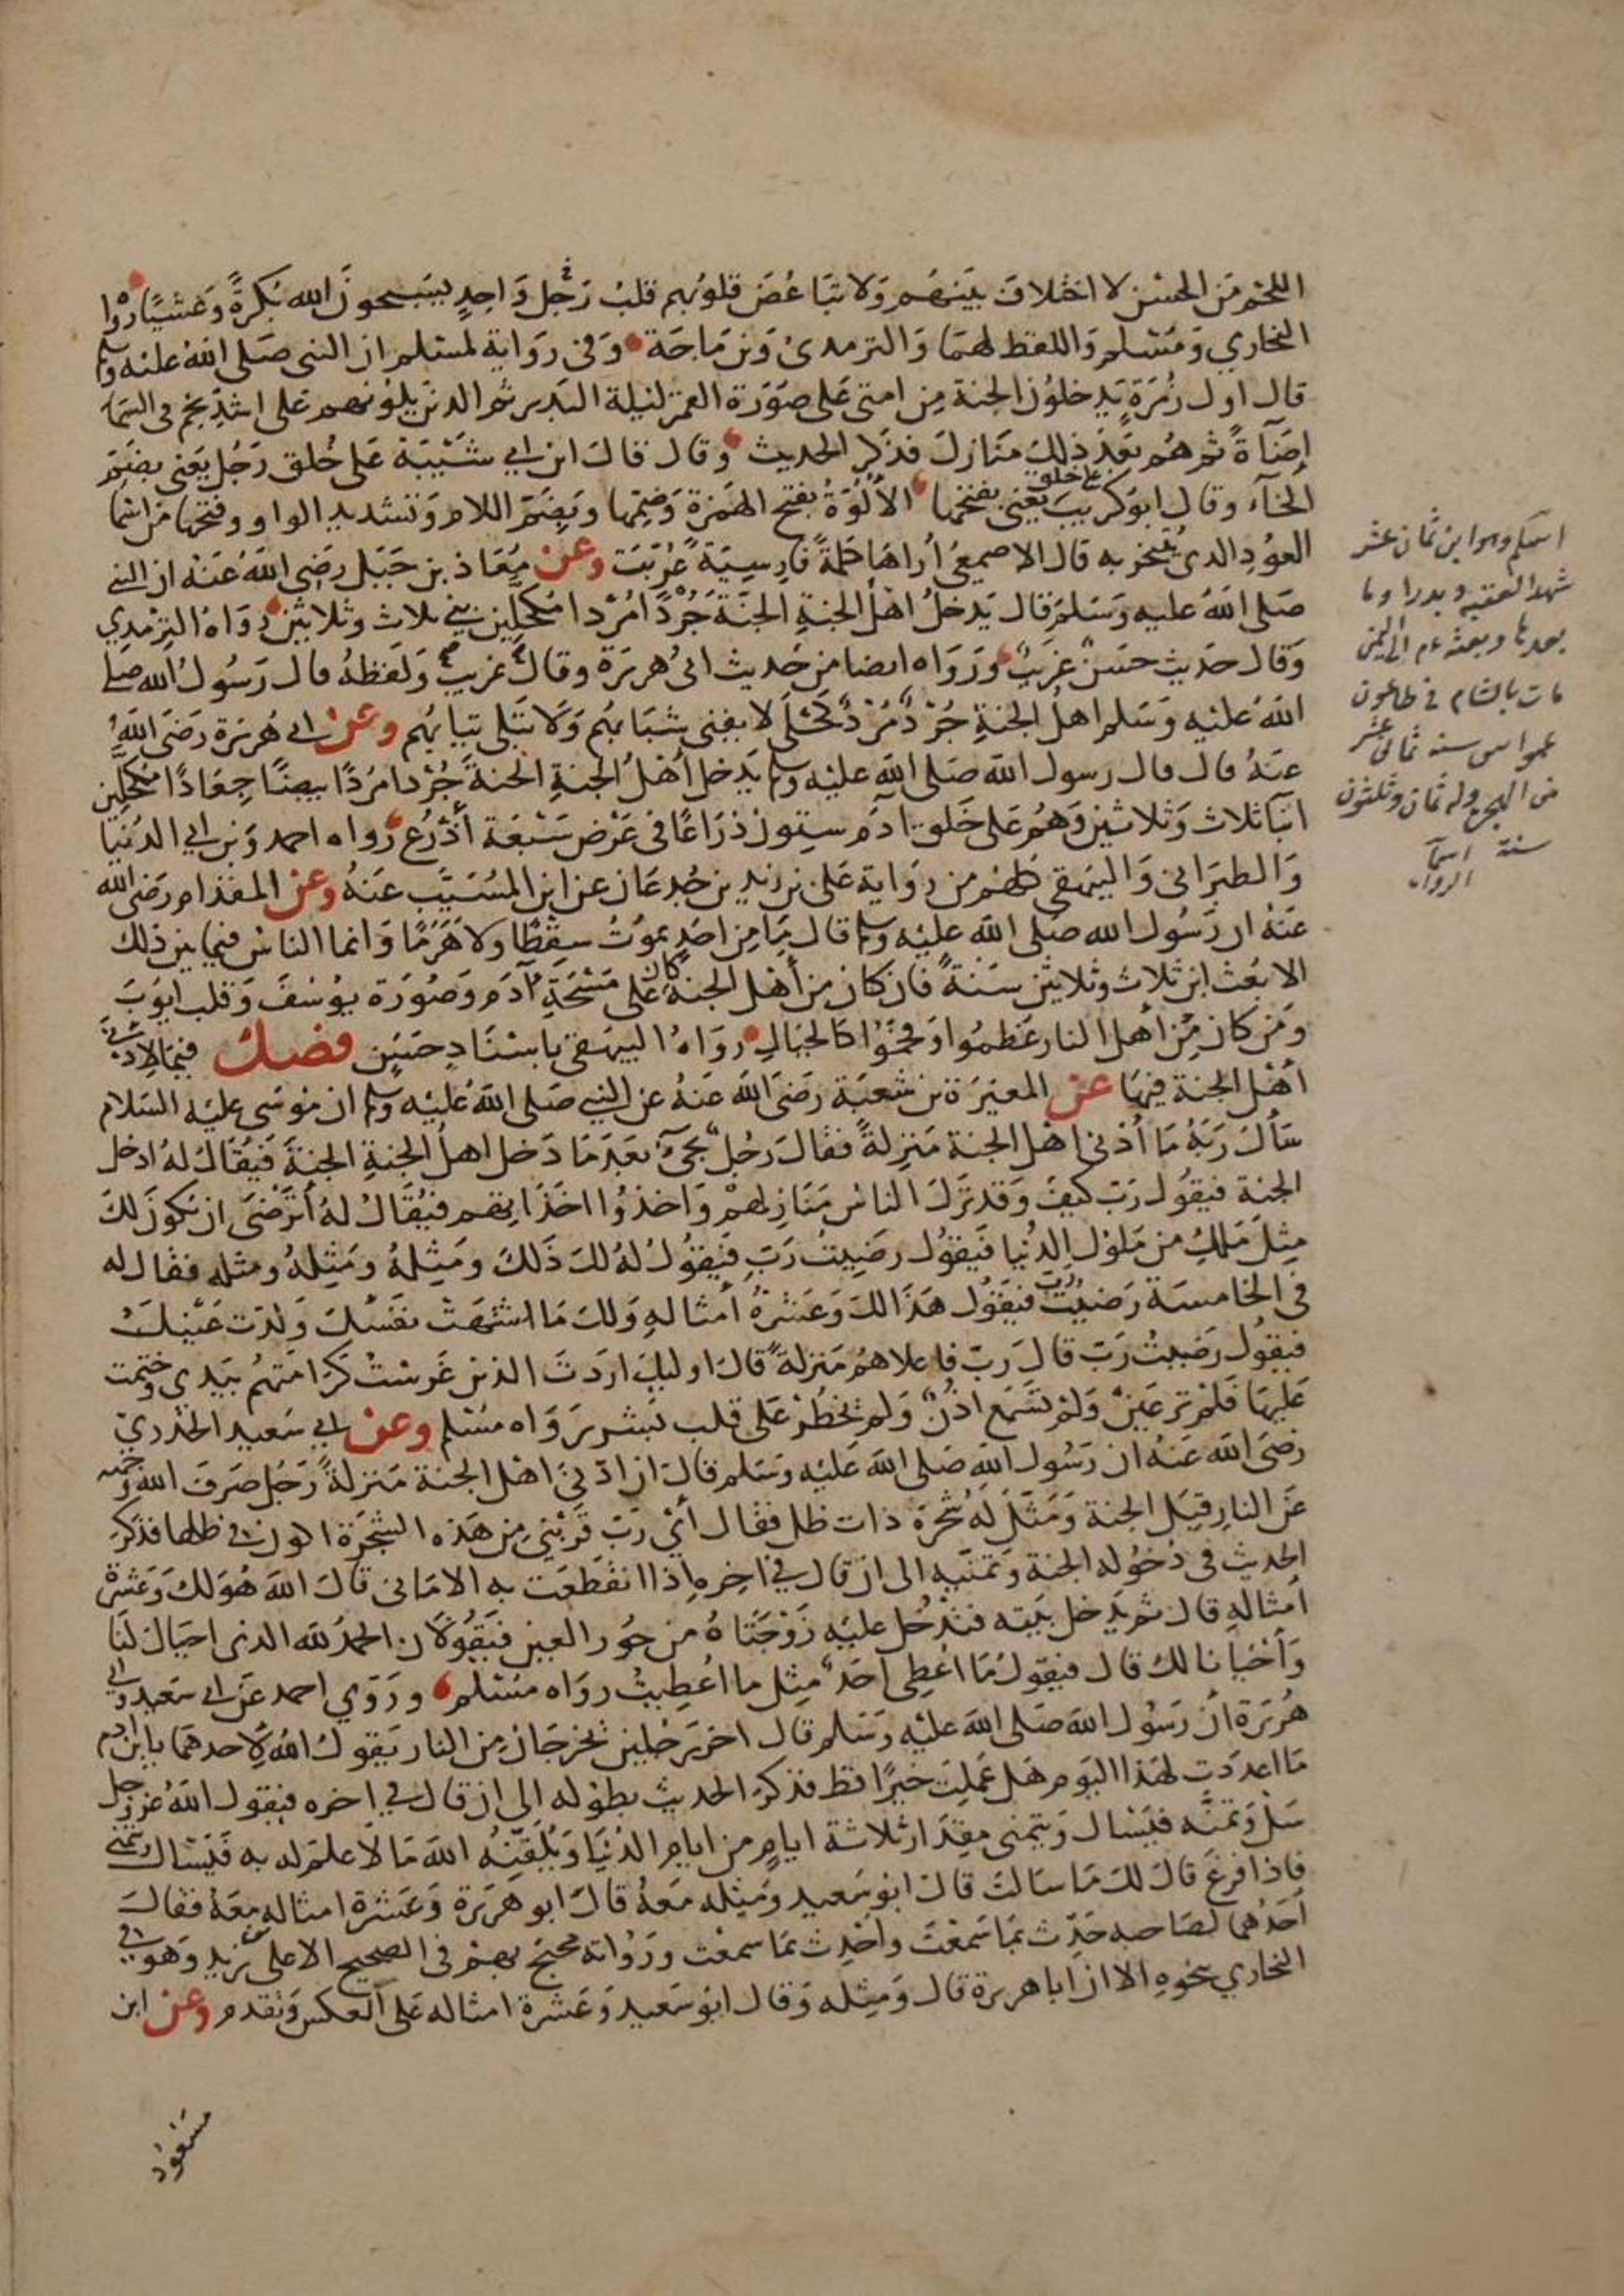 اللحم من الحسن لا اختلاف بينهم ولا تباغض قلوبهم قلب رجل واحد يسبحون الله بكرة وعشيا رواه
البخاري ومسلم واللفظ لهما والترمدى وبن ماجة وفى رواية لمسلم ان النبى صلى الله عليه وسلم
قال اول زمرة يدخلون الجنة من امتى على صورة القمر ليلة البدر ثم الدين يلونهم على اشد نجم فى السما
اضآة ثم هم بعد ذلك منازل فذكر الحديث وقال قال ابن ابي شيبة على خلق رجل يعنى بضم
الخآء وقال ابو كريب على خلق يعنى بفتحها الألوة بفتح الهمزة وضمها وبضم اللام وتشديد الواو وفتحها من اسما
العود الدى يتبخر به قال الاصمعى أراها كلمة فارسية عربت وعن معاذ بن جبل رضى الله عنه ان النبي
صلى الله عليه وسلم قال يدخل اهل الجنة الجنة جردا مردا مكحلين بني ثلاث وثلاثين رواه الترمدي
وقال حديث حسن غريب ورواه ايضا من حديث ابى هريرة وقال غريب ولفظه قال رسول الله صلى
الله عليه وسلم اهل الجنة جرد مرد كحلى لا يفنى شبابهم ولا تبلى ثيابهم وعن ابي هريرة رضى الله
عنه قال قال رسول الله صلى الله عليه وسلم يدخل أهل الجنة الجنة جردا مردا بيضا جعادا مكحلين
ابنآ ثلاث وثلاثين وهم على خلق آدم ستون ذراعا فى عرض سبعة أذرع رواه احمد وبن ابي الدنيا
والطبرانى والبيهقى كلهم من رواية على بن زيد بن جدعان عن ابن المسيب عنه وعن المقدام رضى الله
عنه ان رسول الله صلى الله عليه وسلم قال ما من احد يموت سقطا ولا هرما وانما الناس فيما بين ذلك
الا بعث ابن ثلاث وثلاثين سنة فان كان من أهل الجنة كان على مسحة آدم وصورة يوسف وقلب ايوب
ومن كان من أهل النار عظموا وفخموا كالجبال رواه البيهقى باسناد حسن فصل فيما لادنى
أهل الجنة فيها عن المغيرة بن شعبة رضى الله عنه عن النبي صلى الله عليه وسلم ان موسى عليه السلام
سأل ربه ما أدنى اهل الجنة منزلة فقال رجل يجئ بعد ما دخل اهل الجنة الجنة فيقال له ادخل
الجنة فيقول رب كيف وقد نزل الناس منازلهم واخذوا اخذاتهم فيقال له أترضى ان تكون لك
مثل ملك من ملوك الدنيا فيقول رضيت رب فيقول له لك ذلك ومثله ومثله ومثله فقال له
فى الخامسة رضيت رب فيقول هذا لك وعشرة أمثاله ولك ما اشتهت نفسك ولذت عينك
فيقول رضيت رب قال رب فاعلاهم منزلة قال اوليك اردت الذين غرست كرامتهم بيدى وختمت
عليها فلم تر عين ولم تسمع اذن ولم يخطر على قلب بشر رواه مسلم وعن ابي سعيد الخدري
رضى الله عنه ان رسول الله صلى الله عليه وسلم قال ان ادنى اهل الجنة منزلة رجل صرف الله وجهه
عن النار قبل الجنة ومثل له شجرة ذات ظل فقال أي رب قربني من هذه الشجرة اكون فى ظلها فذكر
الحديث فى دخوله الجنة وتمنيه الى ان قال في اخره إذا انقطعت به الامانى قال الله هو لك وعشرة
أمثاله قال ثم يدخل بيته فتدخل عليه زوجتاه من حور العين فيقولان الحمد لله الدى احياك لنا
وأحيانا لك قال فيقول ما اعطى احد مثل ما اعطيت رواه مسلم وروى احمد عن ابي سعيد وابي
هريرة أن رسول الله صلى الله عليه وسلم قال اخر رجلين يخرجان من النار يقول الله لاحدهما يا ابن ادم
ما اعددت لهذا اليوم هل عملت خيرا قط فذكر الحديث بطوله الى ان قال في اخره فيقول الله عز وجل
سل وتمنه فيسال ويتمنى مقدار ثلاثة ايام من ايام الدنيا ويلقنه الله ما لا علم له به فيسال ويتمنى
فاذا فرغ قال لك ما سالت قال ابو سعيد ومثله معه قال ابو هريرة وعشرة امثاله معه فقال
أحدهما لصاحبه حدث بما سمعت وأحدث بما سمعت ورواته محتج بهم فى الصحيح الا على بن زيد وهو في
البخاري بنحوه الا ان ابا هريرة قال ومثله وقال ابو سعيد وعشرة امثاله على العكس وتقدم وعن ابن
مسعود
اسلم وهو ابن ثمان عشر
شهد العقبة وبدرا وما
بعدها وبعثه عم الى اليمن
مات بالشام فى طاعون
عمواس سنة ثمانى عشر
من الهجرة وله ثمان وثلثون
سنة اسمآ
الرواة